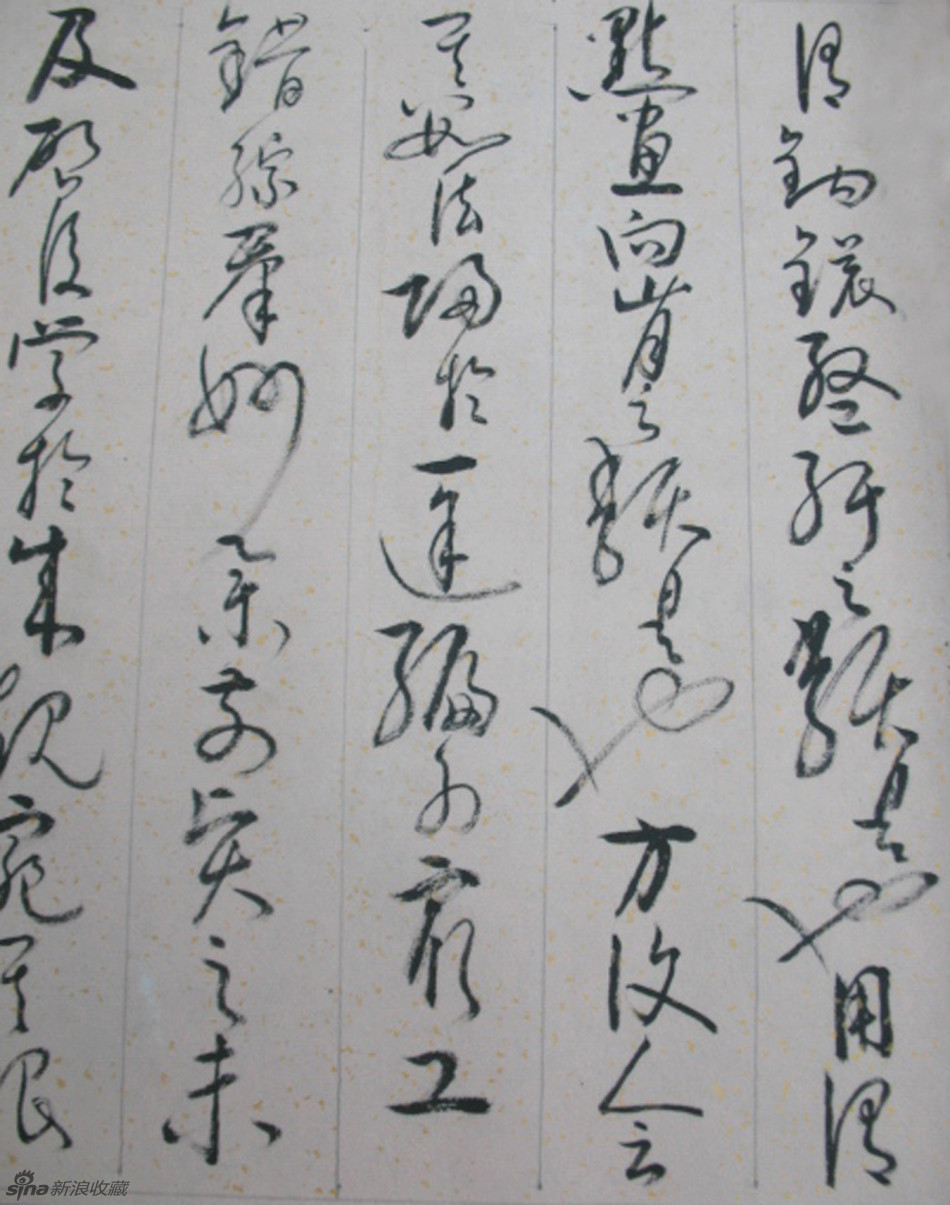 謂鉤鐶盤紆之類是也用謂
點畫向背之類是也方復會
其數法歸於一途編列衆工
錯綜羣妙舉前賢之未
及啓後學於成規窺其根
sina新浪收藏